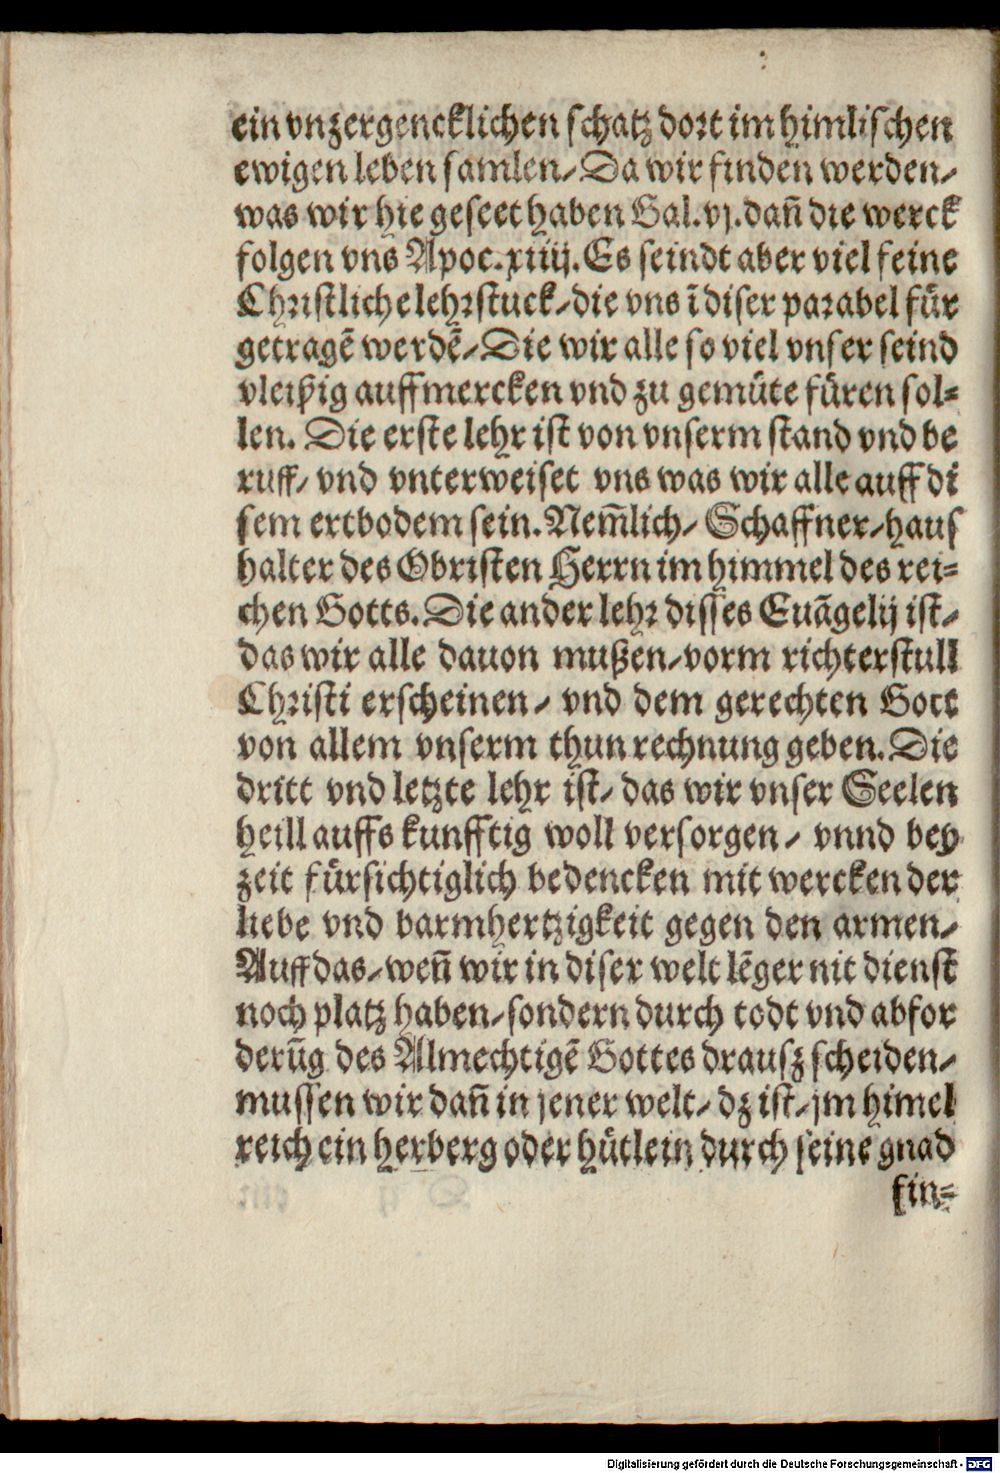 ein vnzergencklichen schatz dort im himlischen
ewigen leben samlen/ Da wir finden werden/
was wir hie geseet haben Gal.vj. dañ die werck
folgen vns Apoc.xiiij. Es seindt aber viel feine
Christliche lehrstuck/ die vns ī diser parabel für
getragē werdē/ Die wir alle so viel vnser seind
vleißig auffmercken vnd zu gemüte füren sol=
len. Die erste lehr ist von vnserm stand vnd be
ruff/ vnd vnterweiset vns was wir alle auff di
sem ertbodem sein. Nem̃lich/ Schaffner/ haus
halter des Obristen Herrn im himmel des rei=
chen Gotts. Die ander lehr disses Euāgelij ist/
das wir alle dauon mußen/ vorm richterstull
Christi erscheinen/ vnd dem gerechten Gott
von allem vnserm thun rechnung geben. Die
dritt vnd letzte lehr ist/ das wir vnser Seelen
heill auffs kunfftig woll versorgen/ vnnd bey
zeit fürsichtiglich bedencken mit wercken der
liebe vnd barmhertzigkeit gegen den armen/
Auff das/ weñ wir in diser welt lēger nit dienst
noch platz haben/ sondern durch todt vnd abfor
derūg des Almechtigē Gottes drausz scheiden/
mussen wir dañ in jener welt/ dz ist/ jm himel
reich ein herberg oder hütlein durch seine gnad
fin=
Digitalisierung gefördert durch die Deutsche Forschungsgemeinschaft - DFG